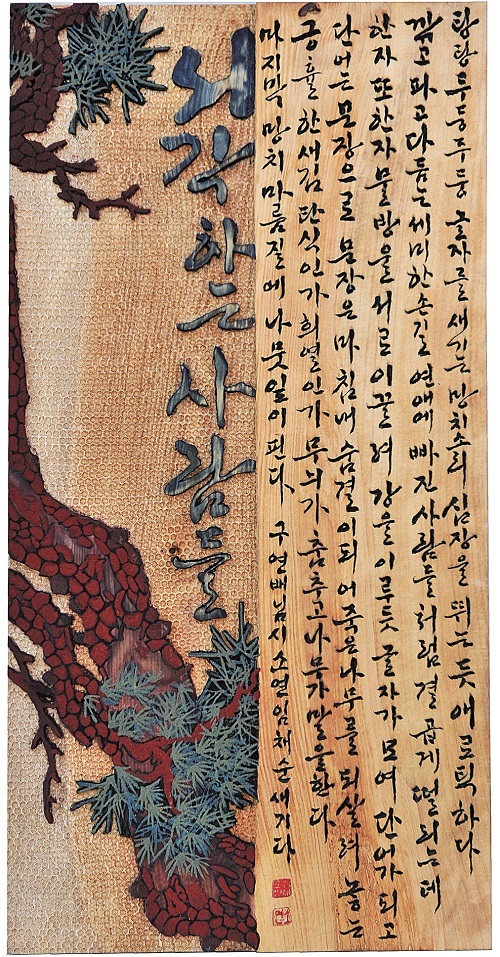 서각하는 사람들
탕탕 투둥두둥 글자를 새기는 망치소리 심장을 뛰는 듯 애로틱하다
깎고 파고 다듬는 세미한 손길 연애에 빠진 사람들처럼 결 곱게 떨리는데
한자 또 한자 물방울 서로 이끌려 강을 이루듯 글자가 모여 단어가 되고
단어는 문장으로 문장은 마침내 숨결이 되어 죽은 나무를 되살려 놓는
긍휼한 새김 탄식인가 희열인가 무늬가 춤추고 나무가 말을 한다
마지막 망치 마름질에 나뭇잎이 핀다 구연배님 시 소연 임채순 새기다